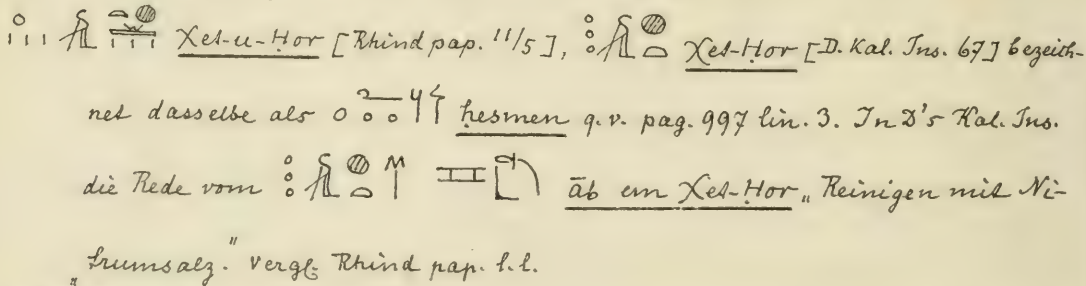 Xet-u-Ḥor [Rhind pap. 11/5], Xet-Ḥor [D. Kal. Ins. 67] bezeich-
net dasselbe als ḥesmen q. v. pag. 997 lin. 3. In D's Kal. Ins.
die Rede vom āb em Xet-Ḥor „Reinigen mit Ni-
„trumsalz." vergl. Rhind pap. l. l.